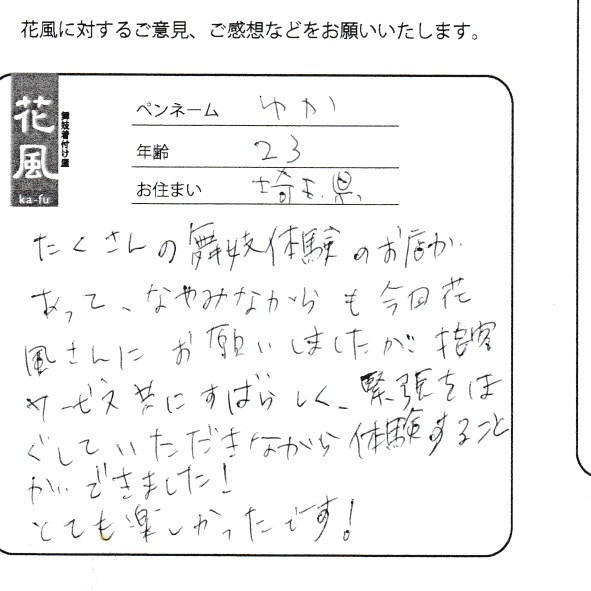 花風に対するご意見、ご感想などをお願いいたします。
花風
舞妓着付け屋
ka-fu
ペンネーム ゆか
年齢 23
お住まい 埼玉県
たくさんの舞妓体験のお店が
あって、なやみながらも今回花
風さんにお願いしましたが接客
サービス共にすばらしく、緊張をほ
ぐしていただきながら体験すること
ができました!
とても楽しかったです!